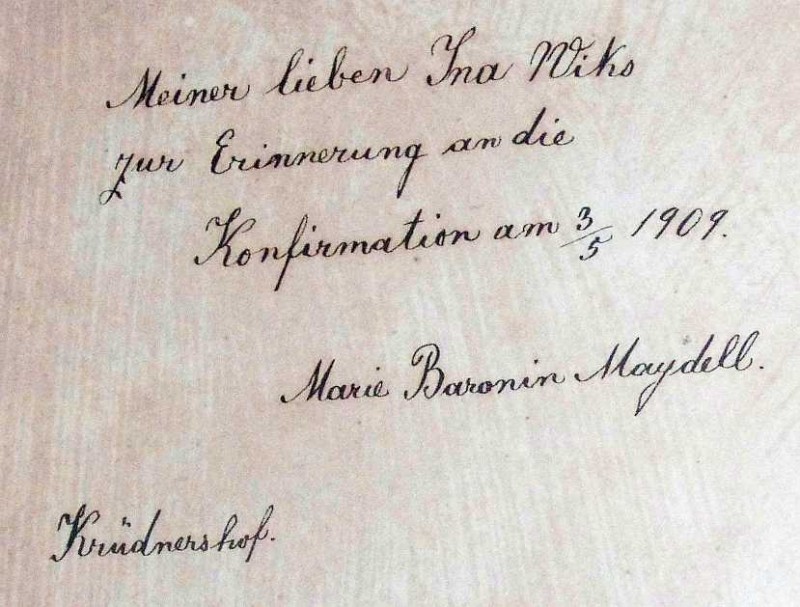 Meiner lieben Ina Wiks
zur Erinnerung an die
Konfirmation am 3/5 1909.
Marie Baronin Maydell.
Krüdnershof.